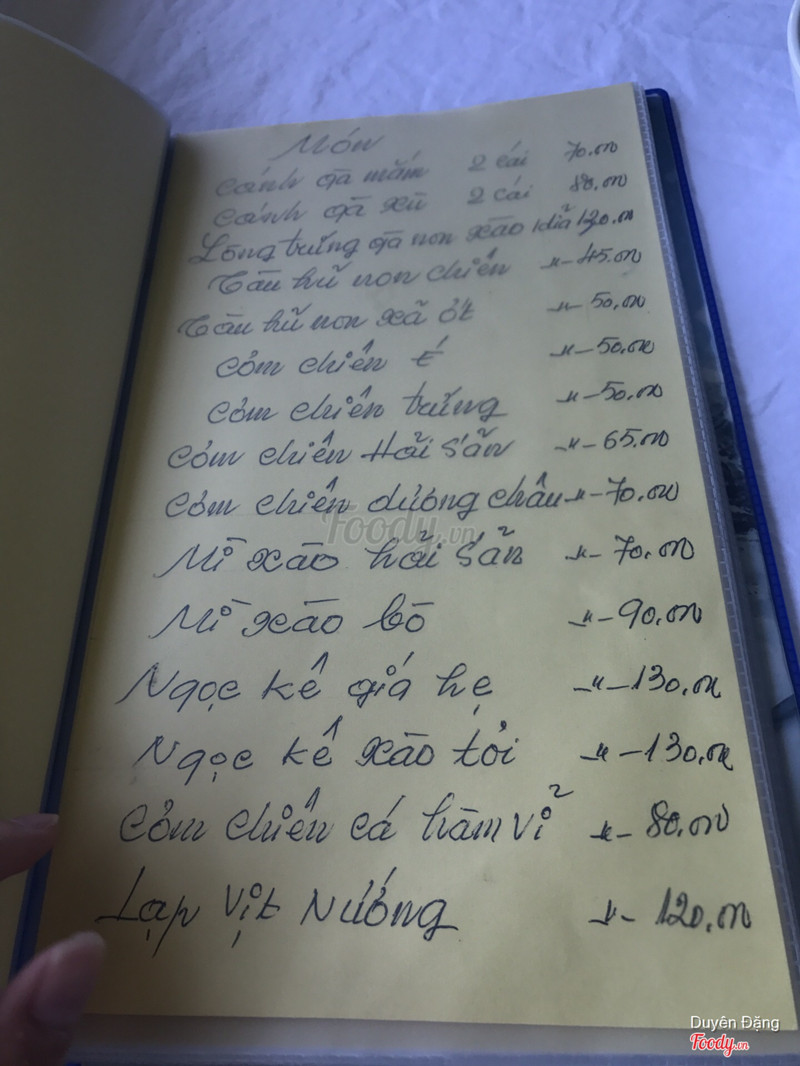 Món
Cánh gà mắm 2 cái 70.000
Cánh gà xù 2 cái 80.000
Lòng trứng gà non xào 1 dĩa 120.000
Tàu hũ non chiên -"- 45.000
Tàu hũ non xã ớt -"- 50.000
Cơm chiên é -"- 50.000
Cơm chiên trứng -"- 50.000
Cơm chiên Hải Sản -"- 65.000
Cơm chiên dương châu -"- 70.000
Mì xào hải Sản -"- 70.000
Mì xào bò -"- 90.000
Ngọc kê giá hẹ -"- 130.000
Ngọc kê xào tỏi -"- 130.000
Cơm chiên cá hàm vĩ -"- 80.000
Lạp Vịt Nướng -"- 120.000
Foody.vn
Duyên Đặng
Foody.vn